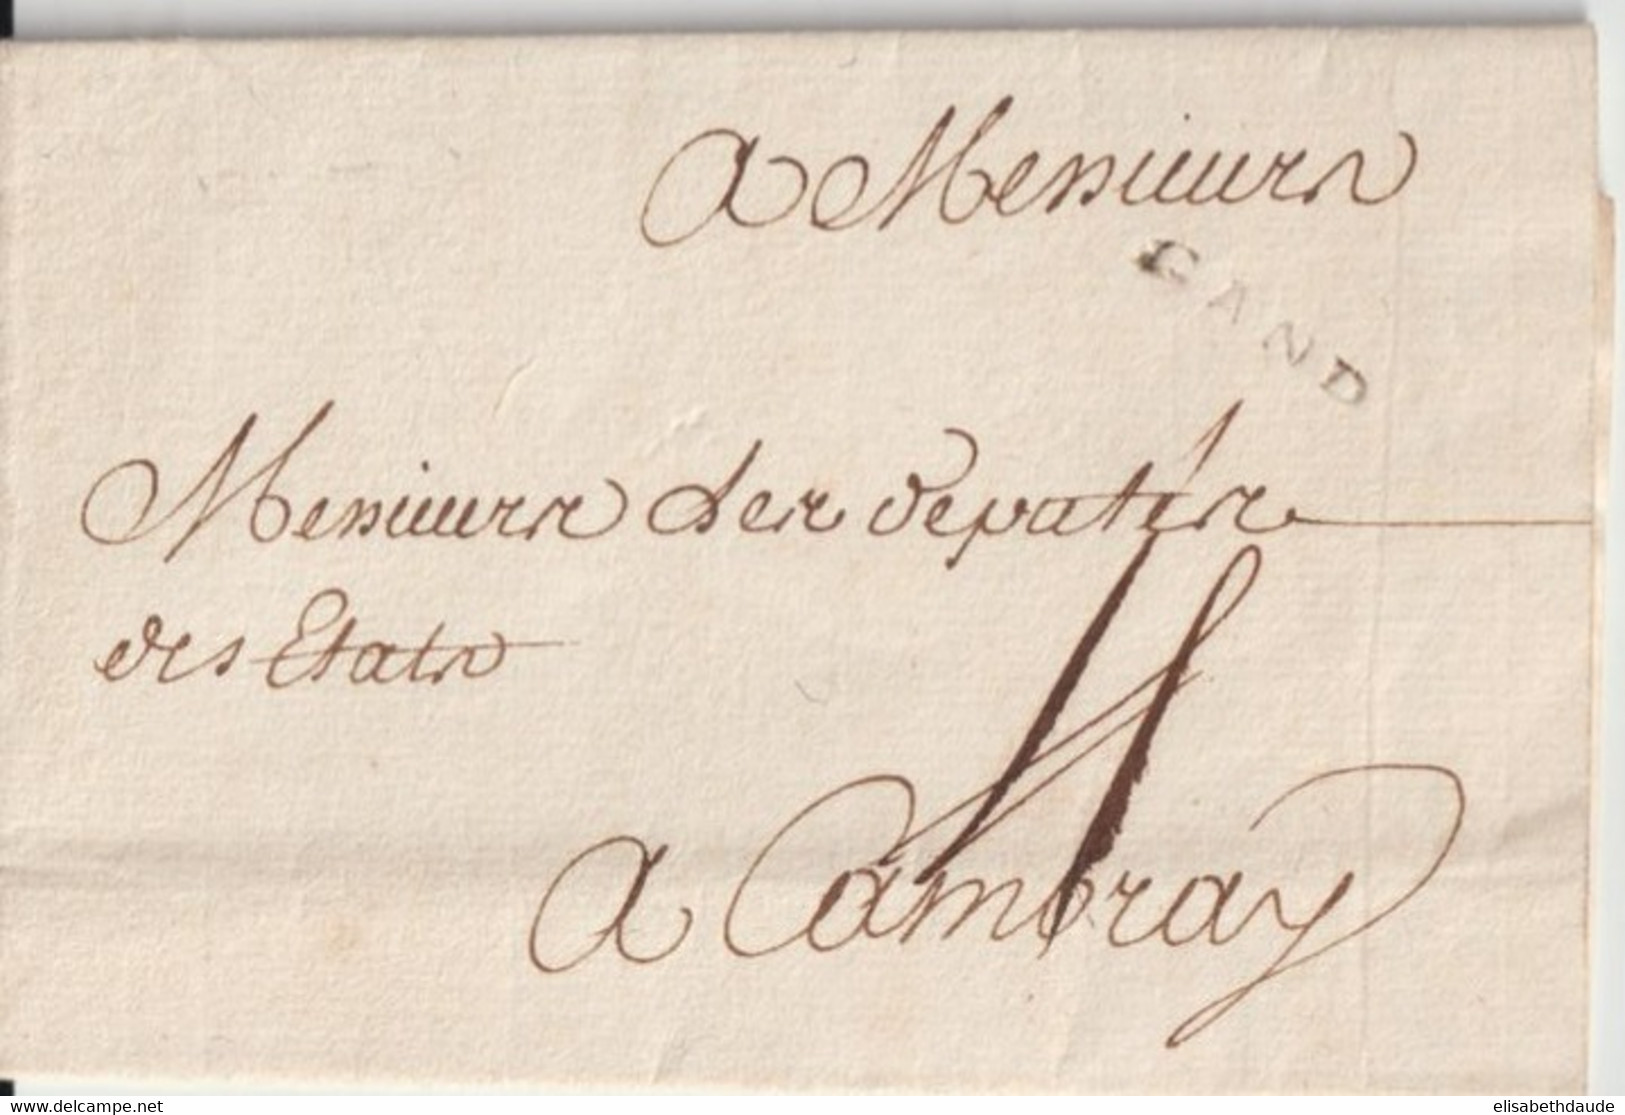 A Messieurs
GAND
Messieurs des deputés
des Etats
A Cambray
www.delcampe.net
elisabethdaude